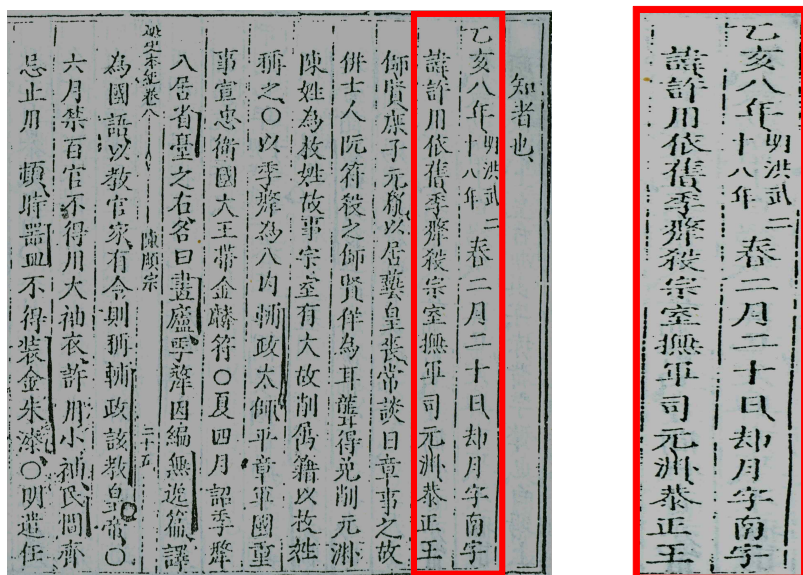 知者也
乙亥八年明洪武二十八年春二月二十日却月字南字
諱許用依舊季犛殺宗室撫軍司元淵恭正王
師賢庶子元胤以居藝皇喪常談日章事之故
併士人阮符殺之師賢佯為耳聾得免削元淵
陳姓為枚姓故事宗室有大故削屬籍以枚姓
稱之〇以季犛為入内輔政太師平章軍國重
事宣忠衛國大王帶金麟符〇夏四月詔季犛
入居省臺之右名曰畫廬季犛因編無逸篇譯
越史本紀卷八 陳順宗 二十五
為國語以教官家有令則稱輔政該教皇帝〇
六月禁百官不得用大袖衣許用小袖民間齊
忌止用 頓時器皿不得装金朱漆〇明遣任
乙亥八年明洪武二十八年春二月二十日却月字南字
諱許用依舊季犛殺宗室撫軍司元淵恭正王